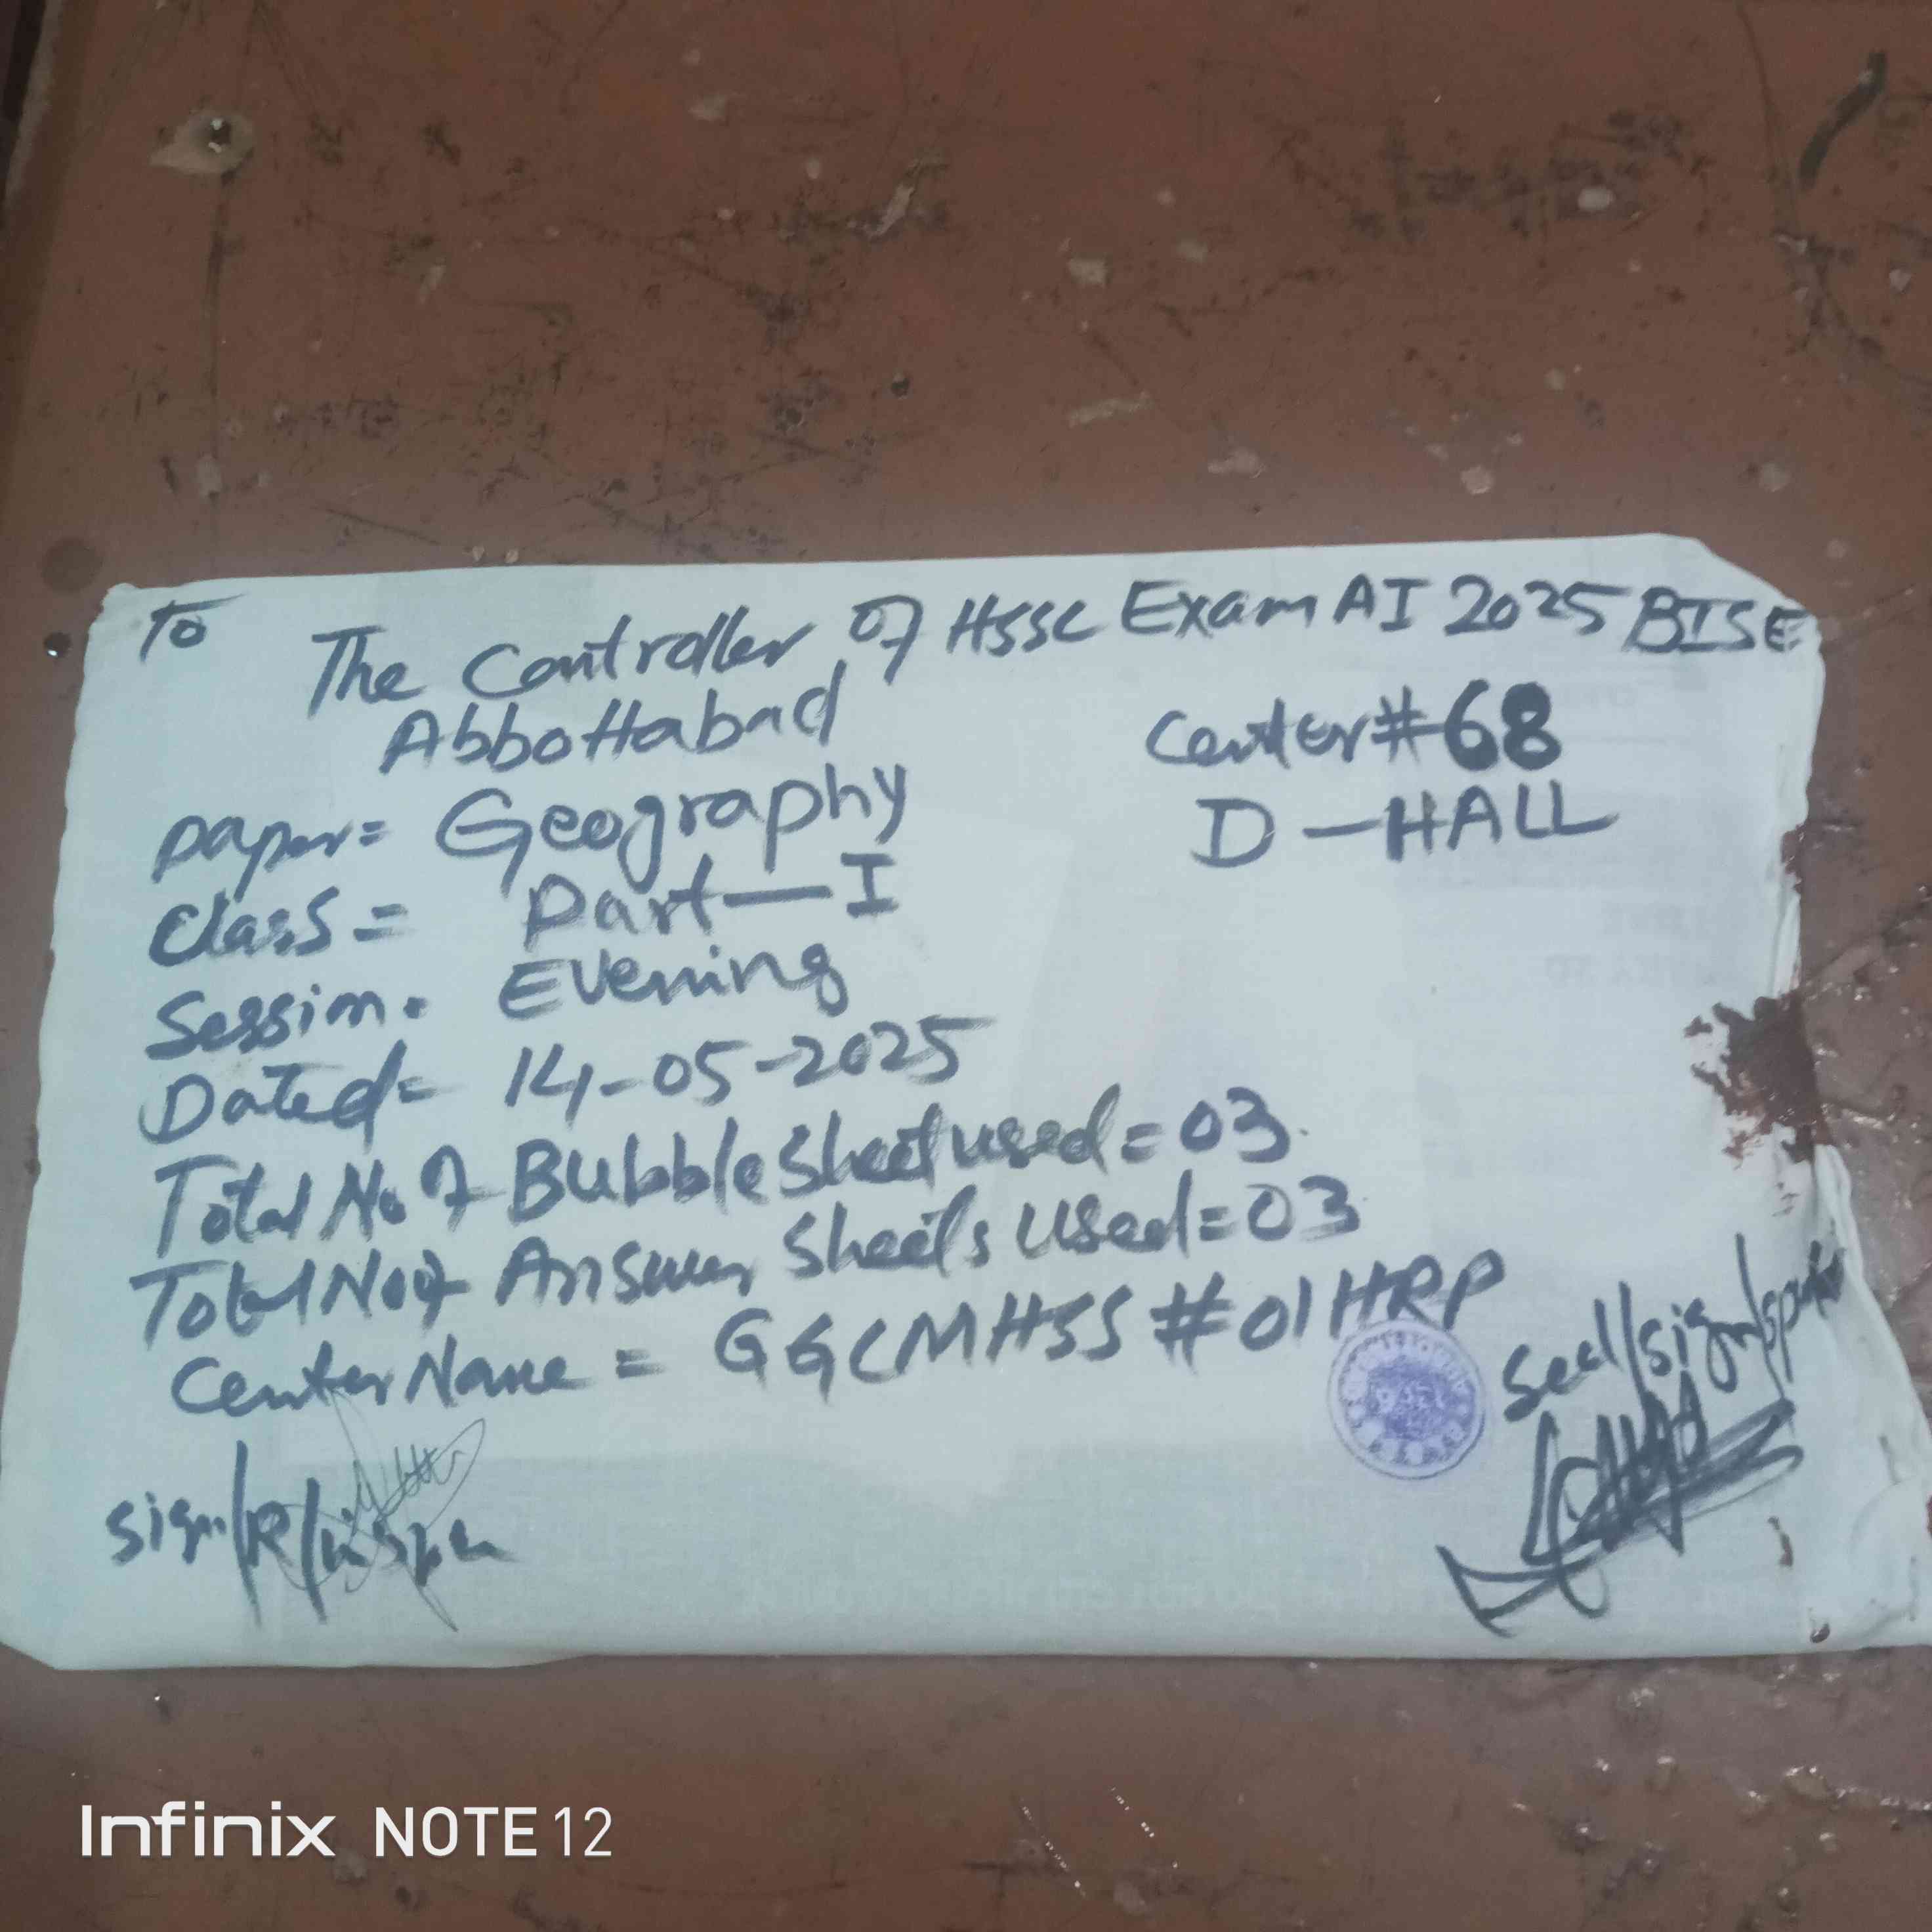 To
The Controller of HSSC Exam AI 2025 BISE
Abbottabad
Center # 68
D - HALL
Paper = Geography
Class = Part - I
Session. Evening
Dated = 14-05-2025
Total No of Bubble Sheet used = 03
Total No of Answer Sheets Used = 03
Center Name = GGCMHSS # 01 HRP
Seal/Sign/
Sign/R/
Infinix NOTE 12